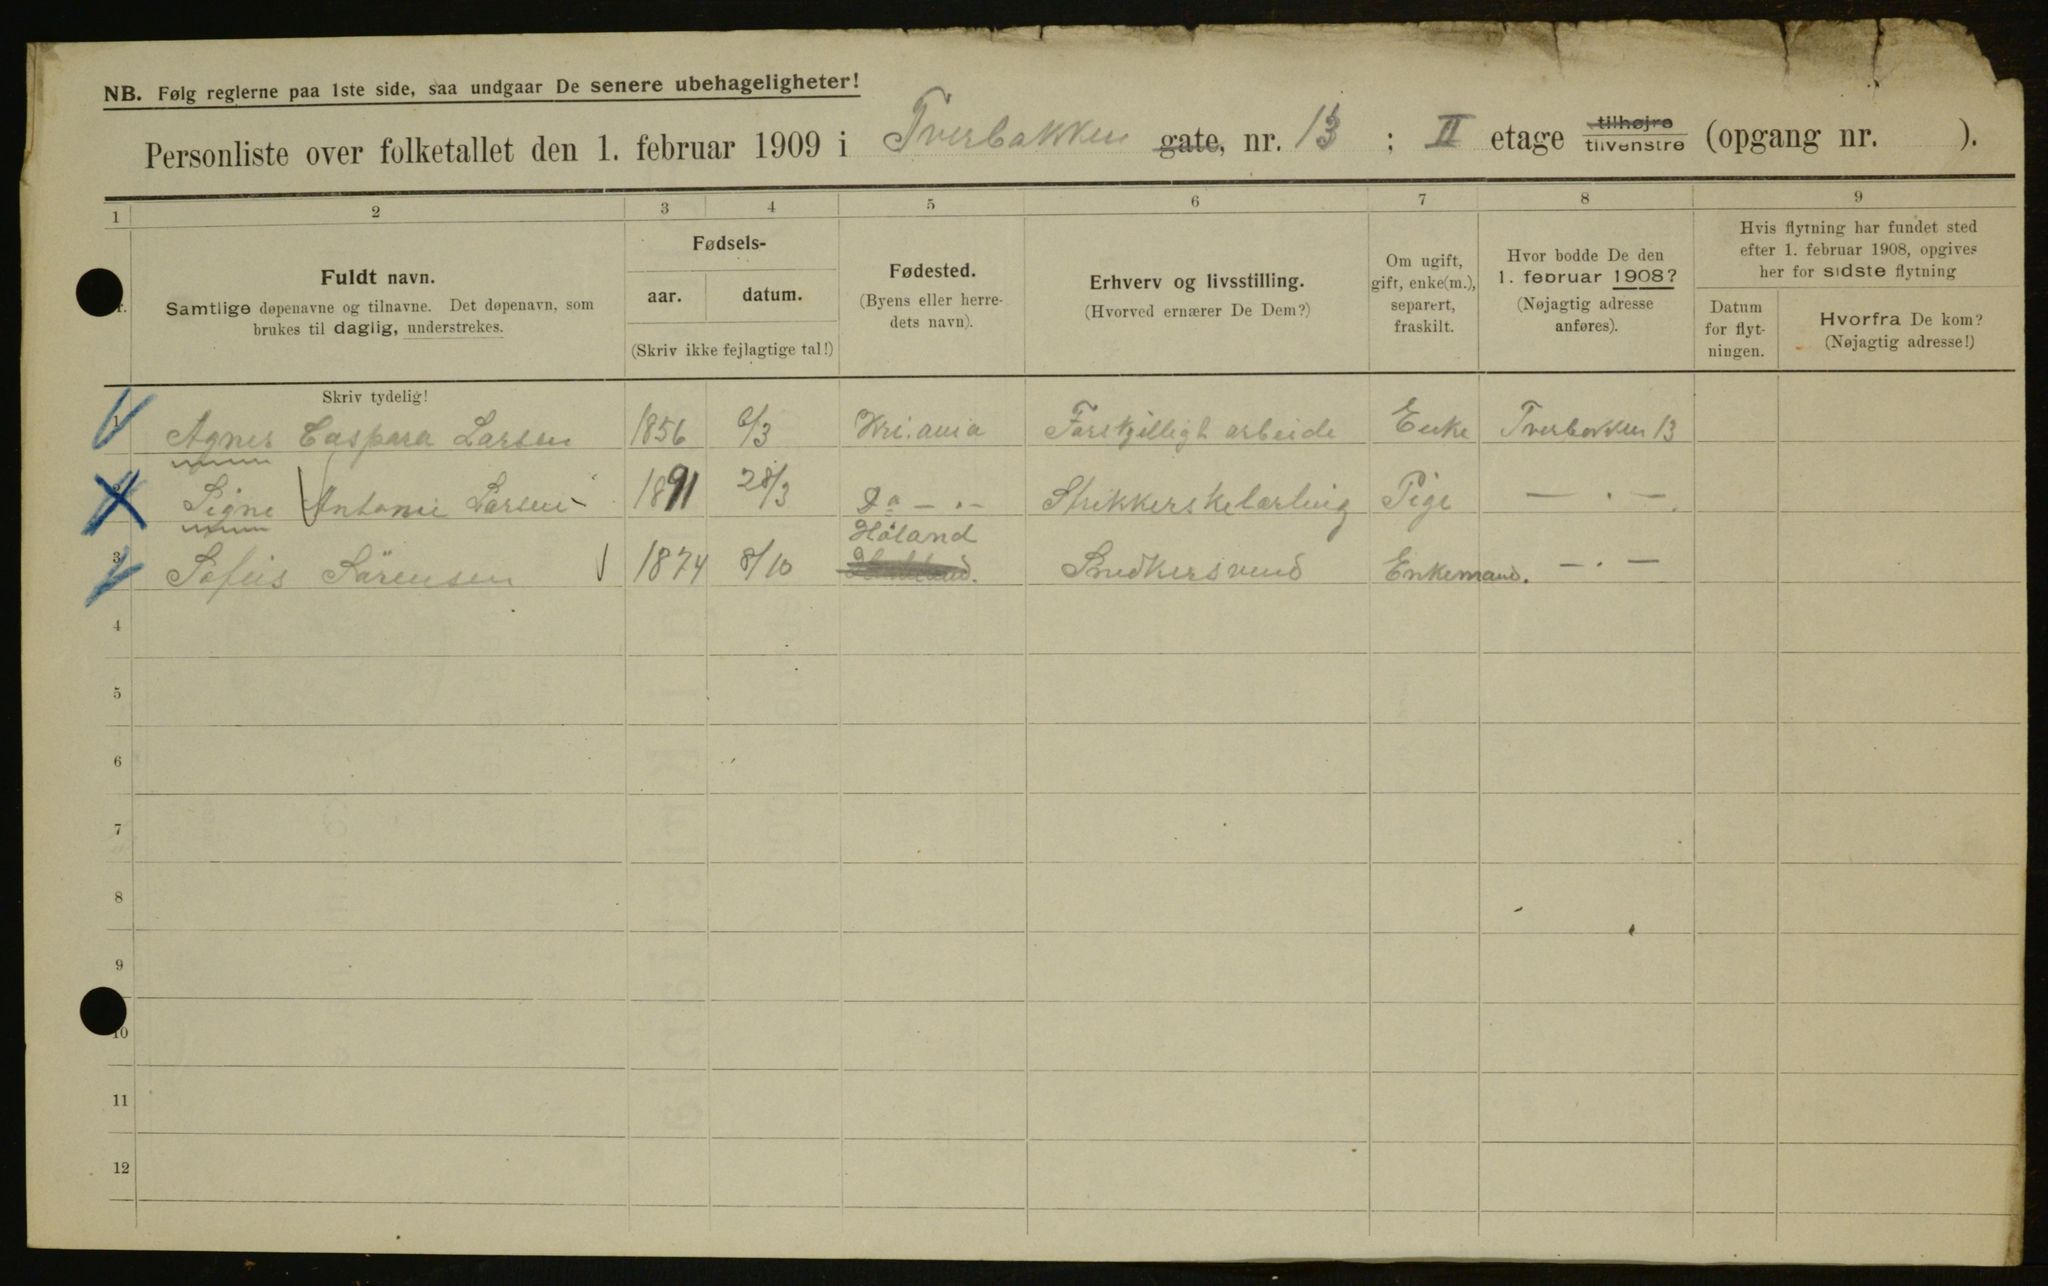 NB. Følg reglerne paa 1ste side, saa undgaar De senere ubehageligheter!
Personliste over folketallet den 1. februar 1909 i Tverbakken gate, nr. 13 ; II etage tilhøjre tilvenstre (opgang nr. ).
1 2 3 4 5 6 7 8 9
Fuldt navn.
Samtlige døpenavne og tilnavne. Det døpenavn, som
brukes til daglig, understrekes.
Fødsels-
aar. datum.
(Skriv ikke fejlagtige tal!)
Fødested.
(Byens eller herre-
dets navn).
Erhverv og livsstilling.
(Hvorved ernærer De Dem?)
Om ugift,
gift, enke(m.),
separert,
fraskilt.
Hvor bodde De den
1. februar 1908?
(Nøjagtig adresse
anføres).
Hvis flytning har fundet sted
efter 1. februar 1908, opgives
her for sidste flytning
Datum
for flyt-
ningen.
Hvorfra De kom?
(Nøjagtig adresse!)
Skriv tydelig!
1 Agnes Caspara Larsen 1856 6/3 Kri.ania Forskjelligt arbeide Enke Tverbakken 13
2 Signe Antonie Larsen 1891 28/3 Do — . — Strikkerskelærling Pige — . —
Høland
3 Sofus Sörensen 1874 8/10 Snedkersvend Enkemand. — . —
4
5
6
7
8
9
10
11
12